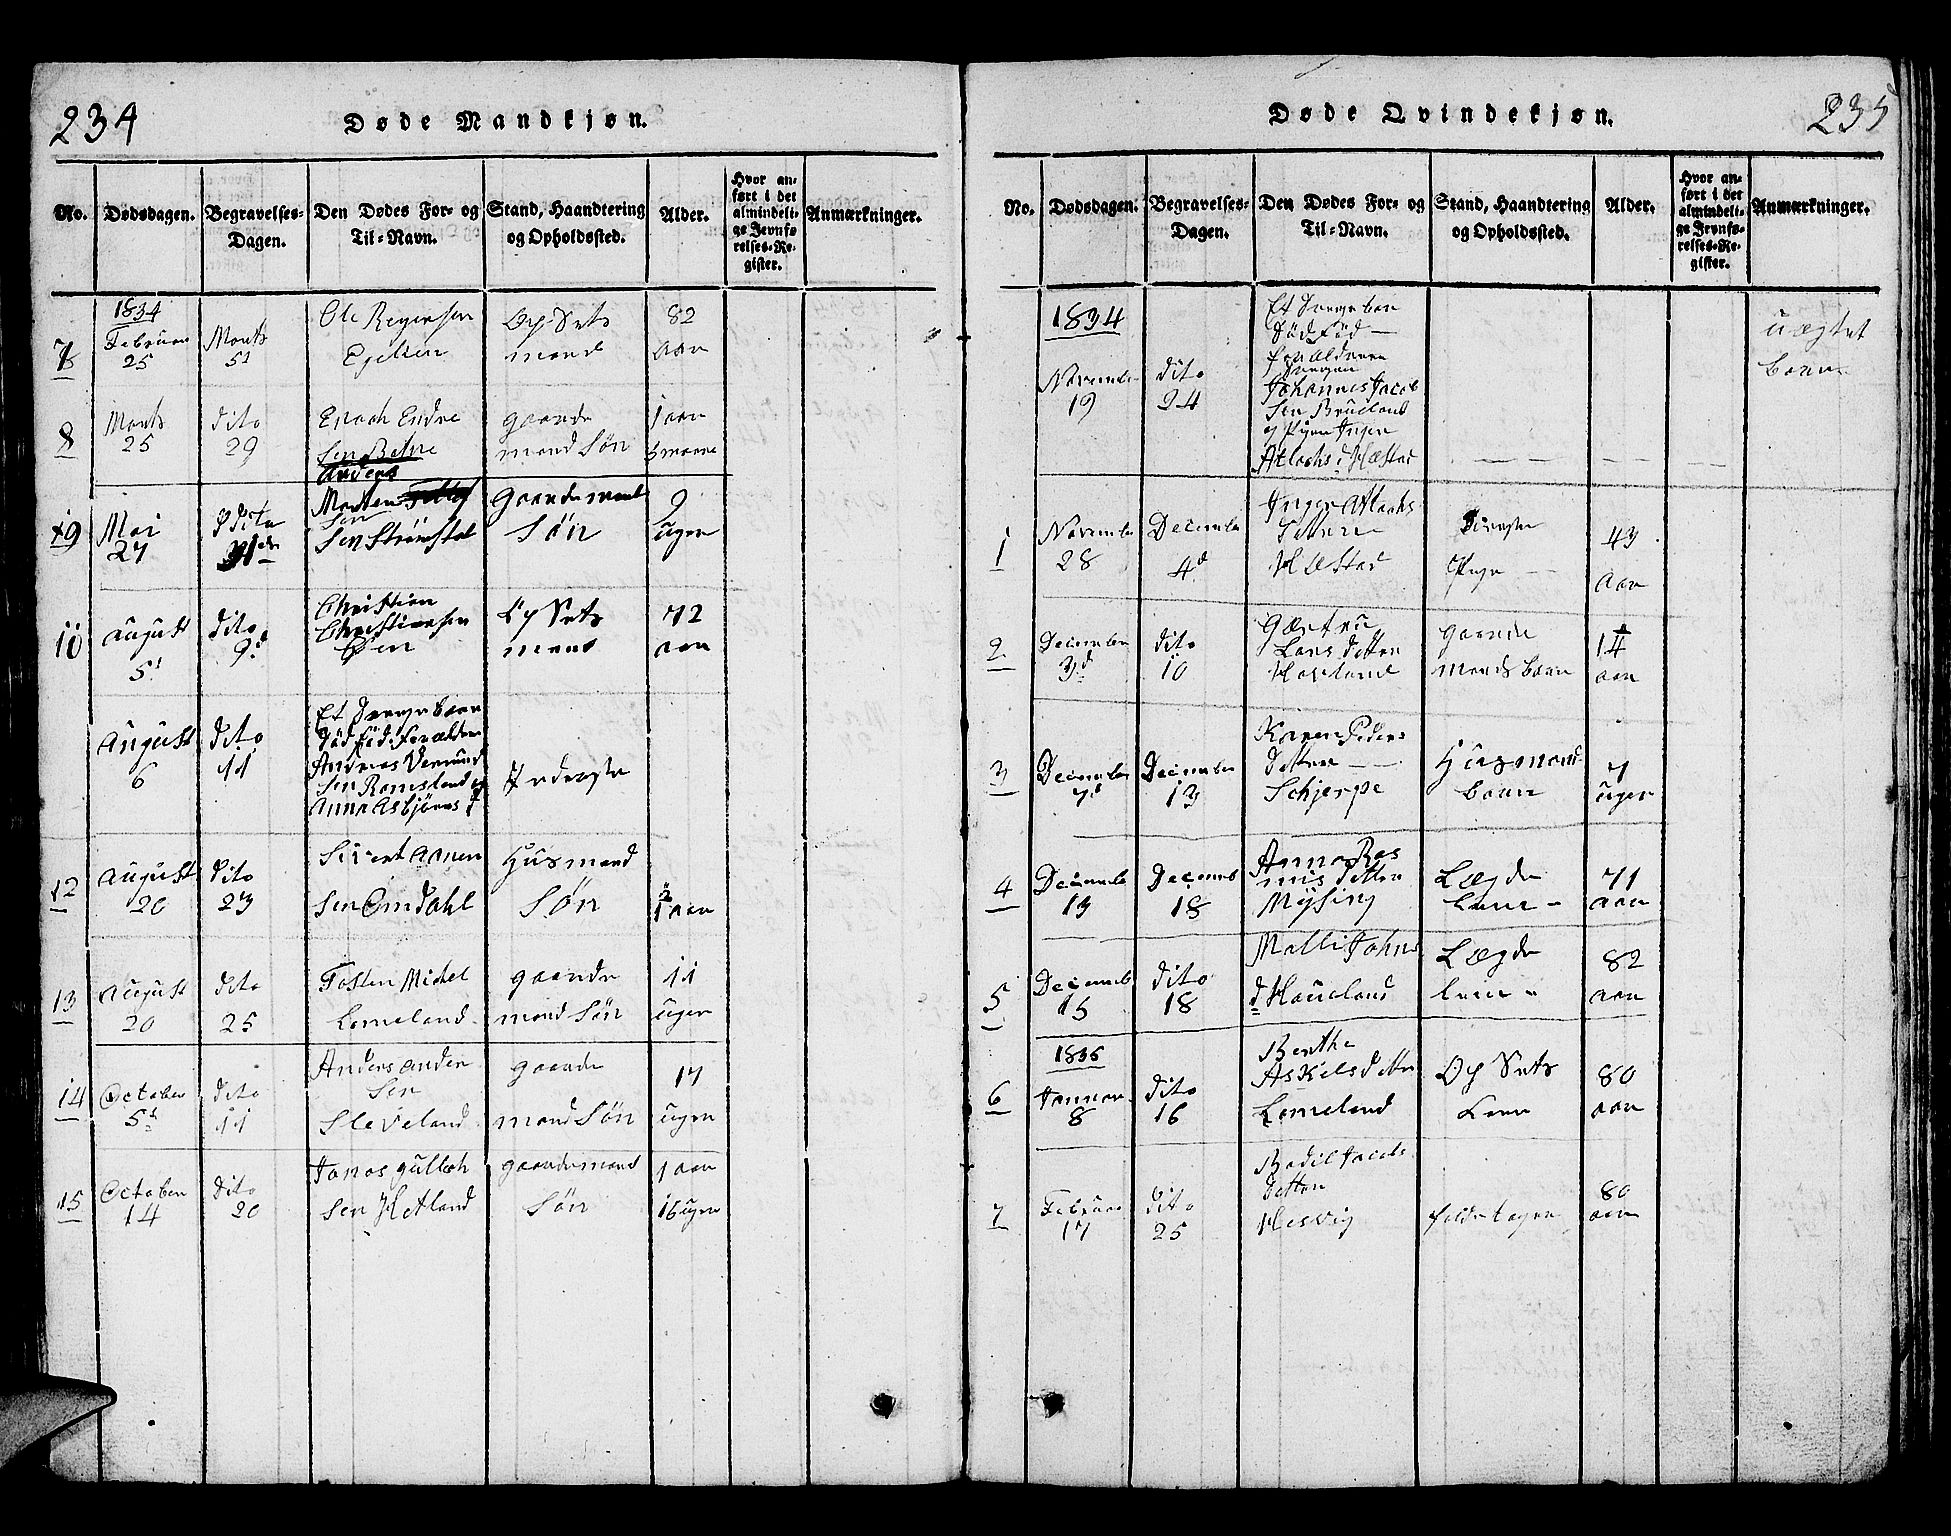 234
Døde Mandkjøn.
No.
Dødsdagen.
Begravelses-
Dagen.
Den Dødes For- og
Til-Navn.
Stand, Haandtering
og Opholdssted.
Alder.
Hvor an-
ført i det
almindeli-
ge Jevnfø-
relses-Re-
gister.
Anmærkninger.
1834
7
Februar
25
Marts
5t
Ole Regersen
Egelsen
Op Sets
mand
82
aar
8
Marts
25
dito
29
Enoch Endre
Sen Behre
gaarde
mand Søn
1 aar
5 maane
9
Mai
27
dito
31
Anders
Morten
Sen
Sen Strömstad
gaardemand
Søn
9
uger
10
august
5t
dito
9d
Christian
Christiansen
Öen
Op Sets
mand
72
aar
August
6
dito
11
Et drenge barn
död föd. forældre
Andreas Vermund
Sen Romsland og
Anna Asbjörns d
Inderste
12
august
20
dito
23
Sivert Aanen
Sen Omdahl
Husmand
Søn
1 aar
13
august
20
dito
25
Tosten Michel
Lomeland
gaarde
mand Søn
11
uger
14
October
5t
dito
11
Anders anders
Sen
Sleveland
gaarde
mand Søn
17
uger
15
October
14
dito
20
Jonas gulleh
Sen Hetland
gaardemand
Søn
1 aar
16 uger
235
Døde Qvindekjøn.
No.
Dødsdagen.
Begravelses-
Dagen.
Den Dødes For- og
Til-Navn.
Stand, Haandtering
og Opholdssted.
Alder.
Hvor an-
ført i det
almindeli-
ge Jevnfø-
relses-Re-
gister.
Anmærkninger.
1834
November
19
dito
24
Et drenge barn
död föd
forældrene
drengen
Johannes Jacob
Sen Brueland
og Pigen Inger
Atlachs d Hæstad
uægtet
barn
1
November
28
December
4d
Inger Atlachs
Detteren
Hæstad
Pige
43
aar
2
December
3d
dito
10
Gærtru
Lars Detter
Hovland
gaarde
mands barn
14
aar
3
December
7d
December
13
Karen Peders
Detter
Schjerpe
Husmand
barn
7
uger
4
December
13
December
18
Anna Ras
mis Detter
Mysing
Lægde
Lem
71
aar
5
December
15
dito
18
Malli Johns
d Haueland
Lægde
Lem
82
aar
1835
6
Januar
8
dito
16
Berthe
Askelsdetter
Lomeland
Op Sets
kone
80
aar
7
Februar
17
dito
25
Bodil Jacobs
Detter
Hesvig
foldetagen
80
aar